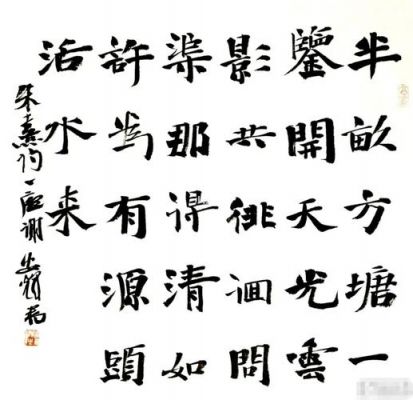 半畝方塘一
鑒開天光雲
影共徘徊問
渠那得清如
許為有源頭
活水来
朱熹